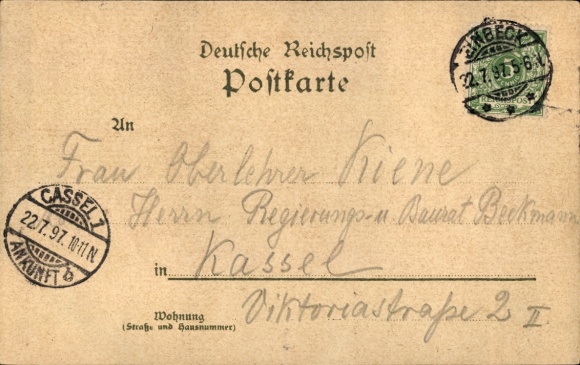 Deutsche Reichspost
Postkarte
EINBECK
22.7.97.5-6N.
REICHSPOST
An
Frau Oberlehrer Kiene
Herrn Regierungs- u. Baurat Beckmann
CASSEL 1
22.7.97.10-11N
ANKUNFT b
in Kassel
Viktoriastraße 2 II
Wohnung
(Straße und Hausnummer)